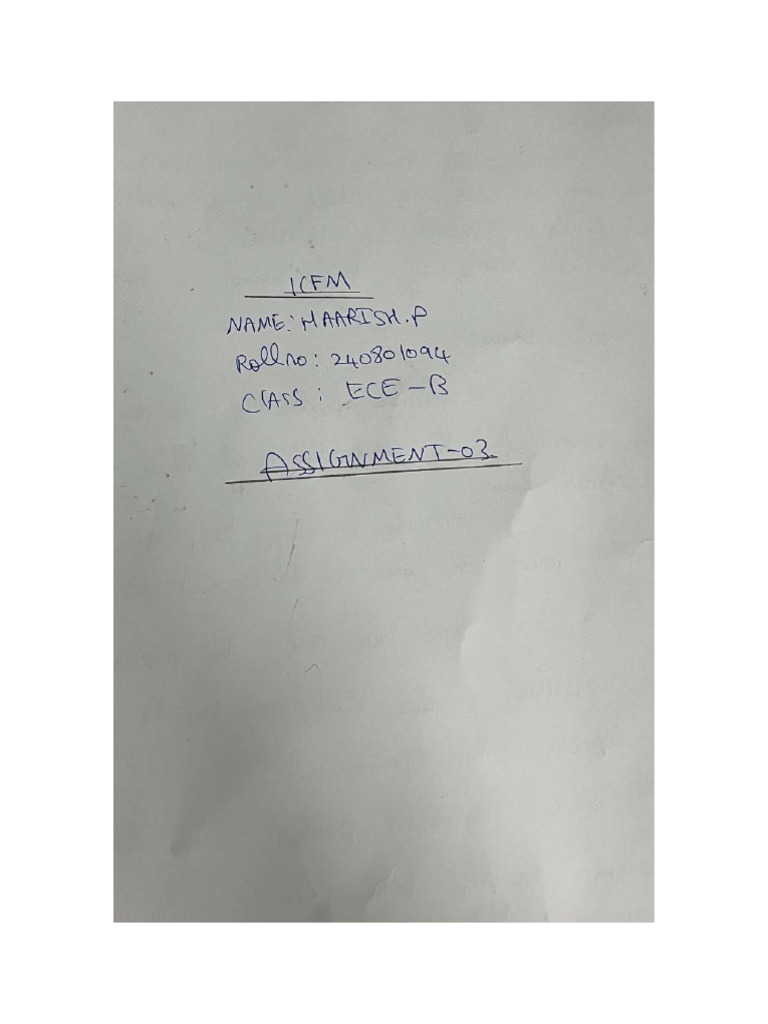 ICFM
NAME: HAARISH.P
Roll no: 240801094
Class: ECE-B
ASSIGNMENT-03